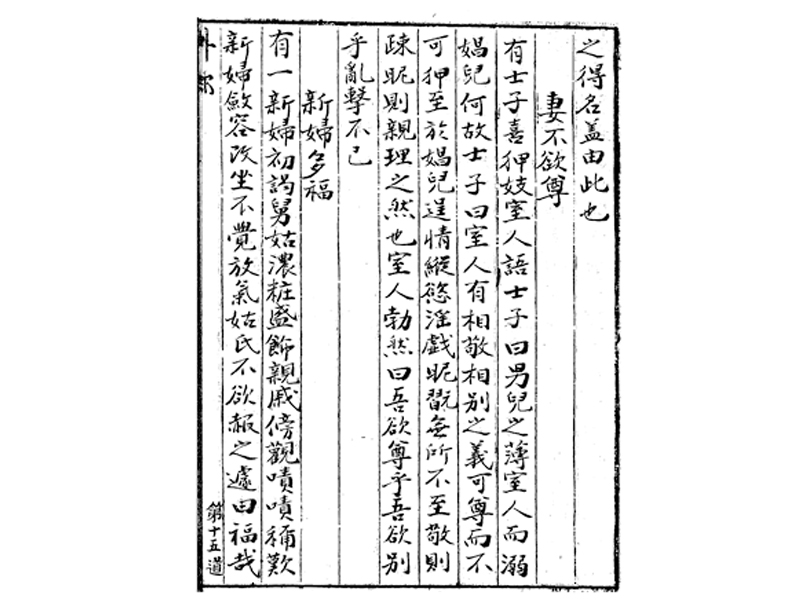 之得名盖由此也
妻不欲尊
有士子喜狎妓室人語士子曰男兒之薄室人而溺
娼兒何故士子曰室人有相敬相別之義可尊而不
可狎至於娼兒逞情縱慾淫戱昵翫無所不至敬則
疎昵則親理之然也室人勃然曰吾欲尊乎吾欲別
乎亂擊不已
新婦多福
有一新婦初謁舅姑濃粧盛飾親戚傍觀嘖嘖稱歎
新婦斂容改坐不覺放氣姑氏不欲赧之遽曰福哉
第十五道